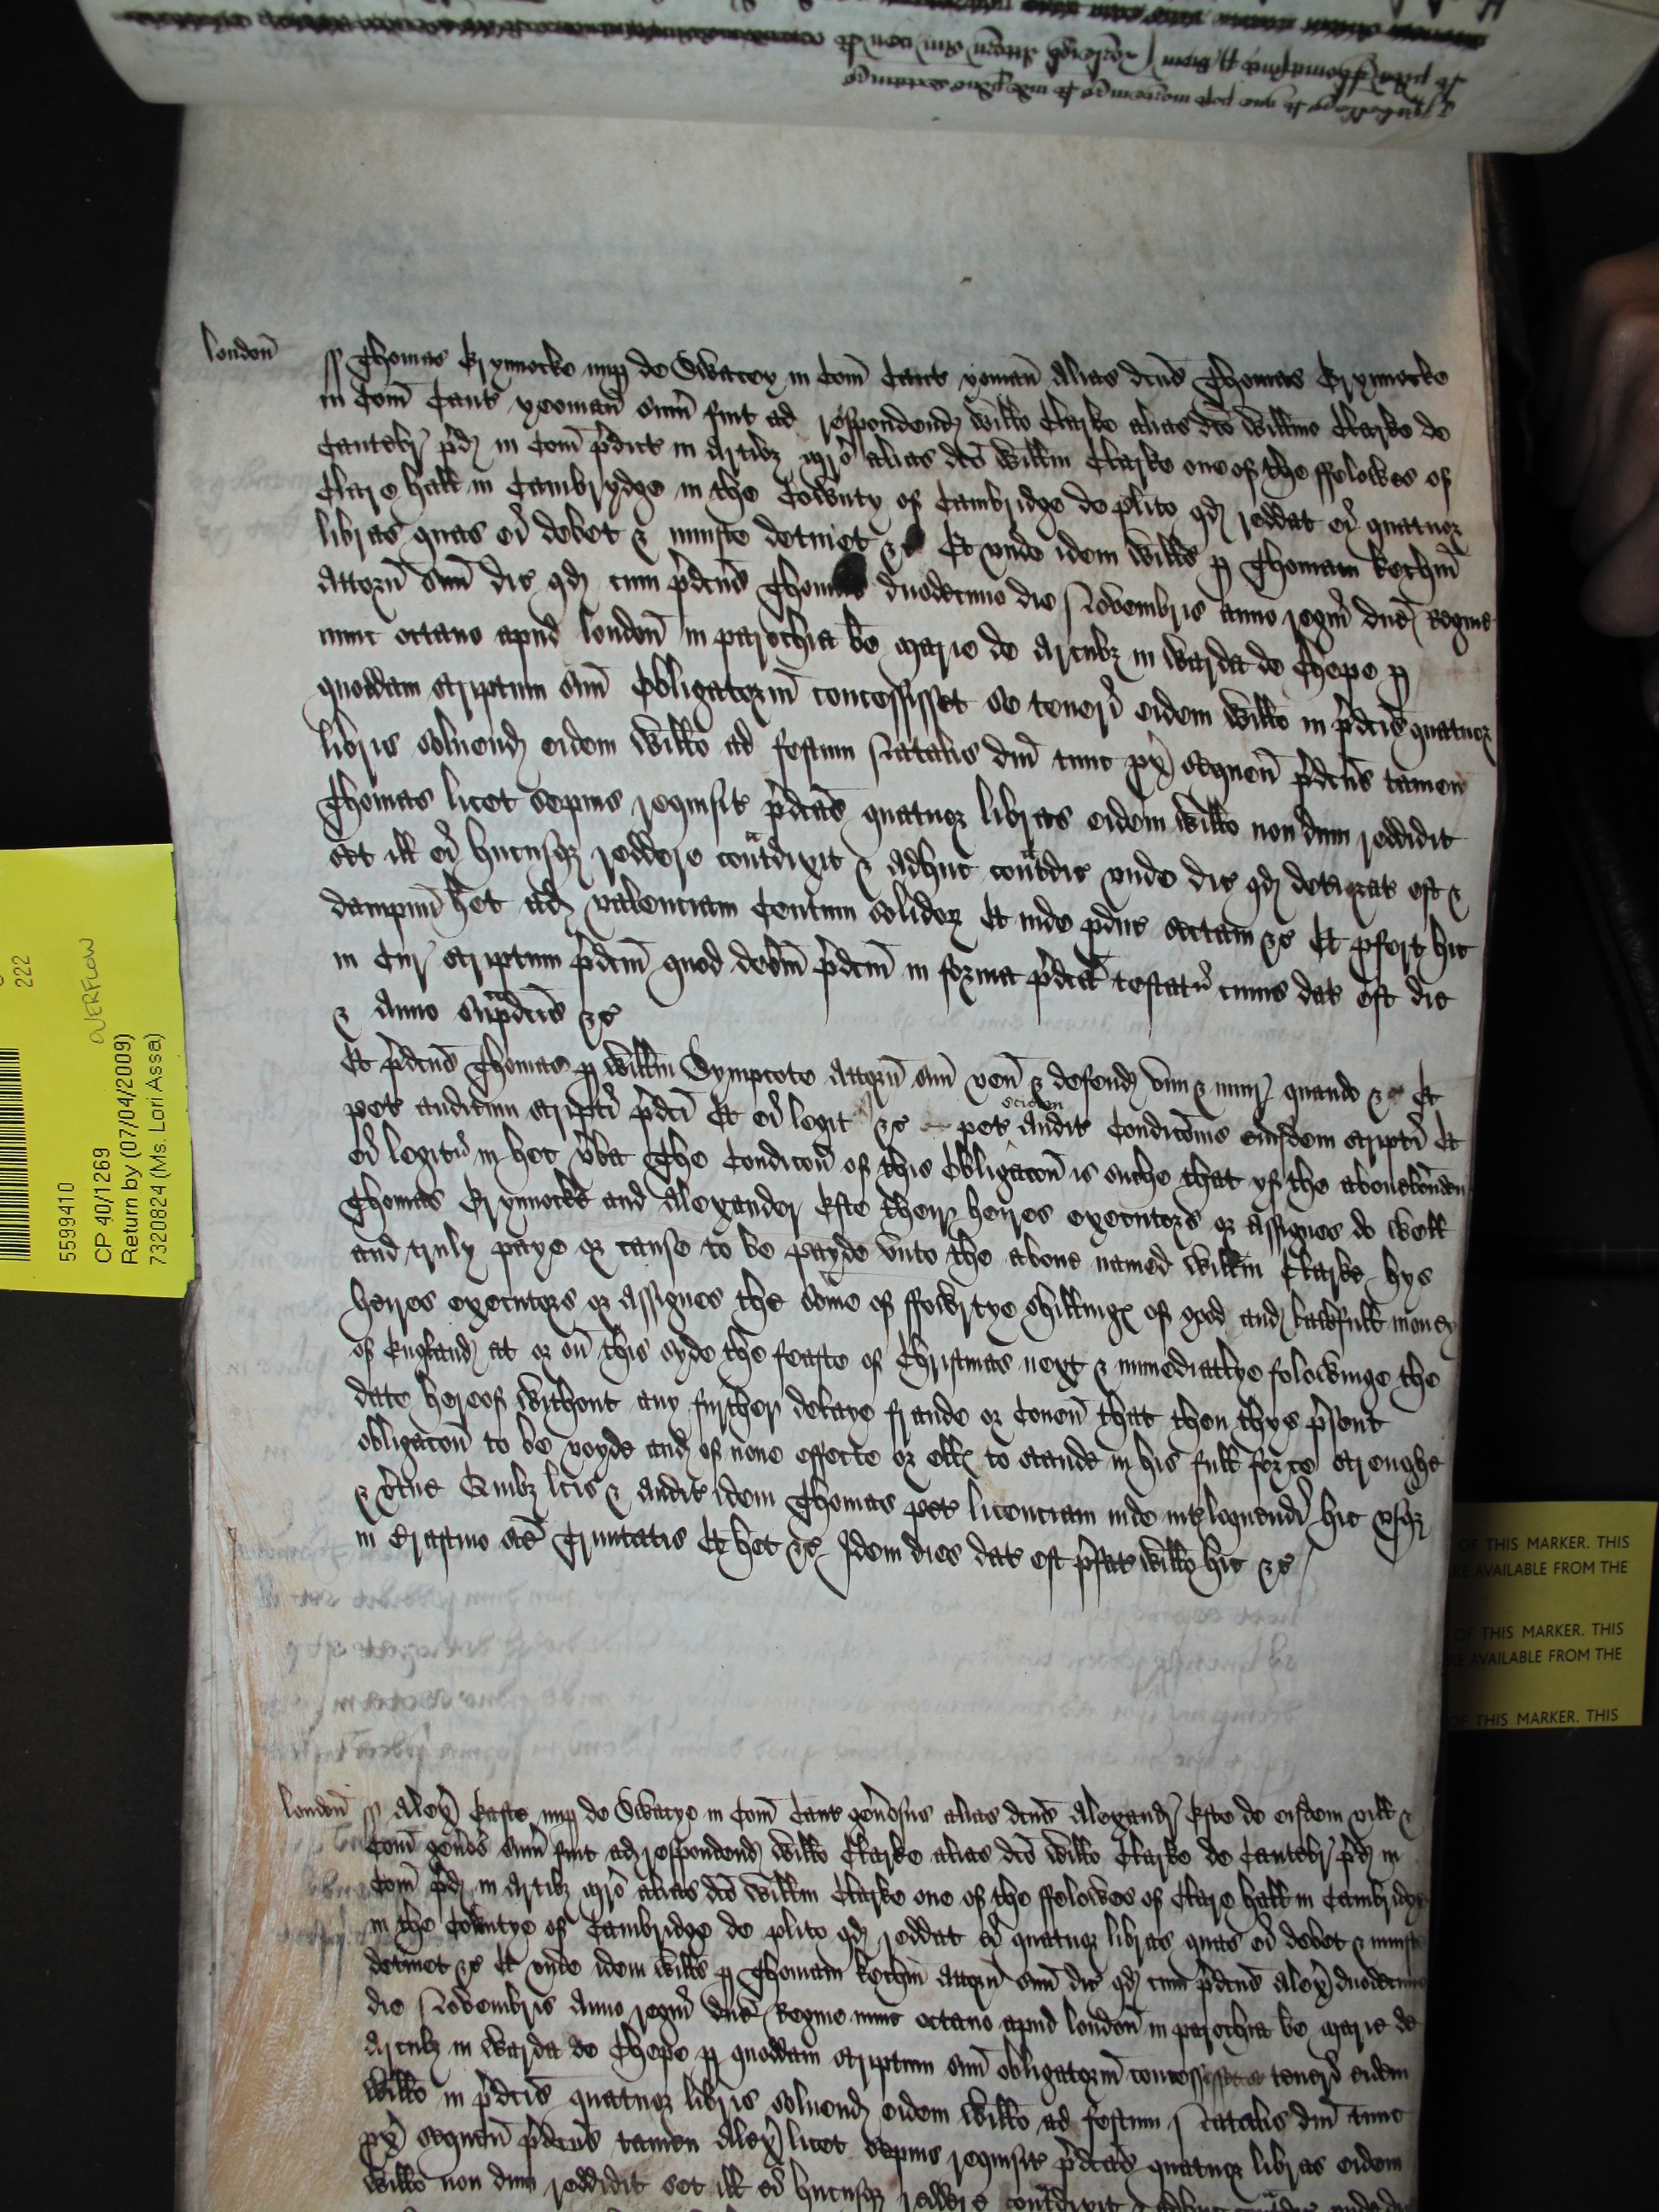 london̄
ss Thomas Brynnocke nup de Swacey in Com̄ Cant yoman̄ Alias dcūs Thomas Brynnocke
in Com̄ Cant yeoman̄ sum̄ fuit ad respondend willō Clarke alias dc̄o willmo Clarke de
Cantebr p̄d in Com̄ p̄dict in Artibz mr̄o alias dc̄o willm Clarke one of the ffelowes of
Clare hall in Cambrydge in the Cownty of Cambridge de plito qd reddat ei quatuor
libras quas ei debet & iniuste detinet &c Et unde idem willus p Thomam kechin̄
Attorn̄ suū dic qd cum p̄dcūs Thomas duodecimo die Novembris anno regni dn̄e Regine
nunc octavo apud london̄ in parochia be marie de Arcubz in warda de Chepe p
quoddam scriptum suū Obligatoriū concessisset se teneri eidem willo in p̄dcīs quatuor
libris solvend eidem willo ad festum Natalis dn̄i tunc px̄ sequen̄ p̄dcūs tamen
Thomas licet sepius requisit p̄dcās quatuor libras eidem willo non dum reddidit
set ill ei hucusqz reddere cont̄dixit & adhuc cont̄dic unde dic qd deteriorat est &
dampnū het ad valenciam Centum solidor Et inde pduc sectam &c Et pfert hic
in Cur scriptum p̄dcm̄ quod debm̄ p̄dcm̄ in forma p̄dcā testatr cuius dat est die
& Anno sup̄dcīs &c
Et p̄dcūs Thomas p willm Sympcote Attorn̄ suū ven̄ & defend vim & iniur quando &c Et
pet auditum scripti p̄dcī Et ei legit &c pet Audit Condicōnis eiusdem scripti Et
ei legitr in hec vba The Condicōn of this Obligacōn is suche that yf the abovebounden
Thomas Brynnocke and Alexander Este theyr heyres executors or Assignes do well
and truly paye or cause to be payde vnto the above named willm Clarke hys
heyres executors or Assignes the some of ffowrtye shillings of good and lawfull money
of England at or on̄ this syde the feaste of Christmas next & immediatlye folowinge the
date hereof without any further delaye fraude or Coven̄ that then thys p̄sent
obligacōn to be voyde and of none effecte or ells to stande in his full force strenghe
& vtue Quibz lc̄is & audit idem Thomas pet licenciam inde intloquendi hic usqz
in Crastino sc̄e Trinitatis Et het &c Idem dies dat est p̄fat willo hic &c
london̄
ss Alex̄ Easte nup de Swacye in Com̄ Cant gen̄osus alias dcūs Alexand Este de eisdem vill &
Com̄ gen̄os sum̄ fuit ad respondend willo Clarke alias dc̄o willo Clarke de Cantebr p̄d in
Com̄ p̄d in Artibz mr̄o alias dc̄o willm Clarke one of the ffelowes of Clare hall in Cambridge
in the Cowntye of Cambridge de plito qd reddat ei quatuor libras quas ei debet & iniuste
detinet &c Et unde idem willus p Thomam kechin Attorn̄ suū dic qd cum p̄dcūs Alex̄ duodecimo
die Novembris Anno regni dn̄e Regine nunc octavo apud london̄ in parochia be marie de
Arcubz in warda de Chepe p quoddam scriptum suū obligatoriū concessisset se teneri eidem
willo in p̄dcīs quatuor libris solvend eidem willo ad festum Natalis dn̄i tunc
px̄ sequen̄ p̄dcūs tamen Alex̄ licet sepius requisit p̄dcās quatuor libras eidem
willo non dum reddidit set ill ei hucusqz reddere cont̄dixit
222
OVERFLOW
5599410
CP 40/1269
Return by (07/04/2009)
7320824 (Ms. Lori Assa)
OF THIS MARKER. THIS
RE AVAILABLE FROM THE
OF THIS MARKER. THIS
RE AVAILABLE FROM THE
OF THIS MARKER. THIS